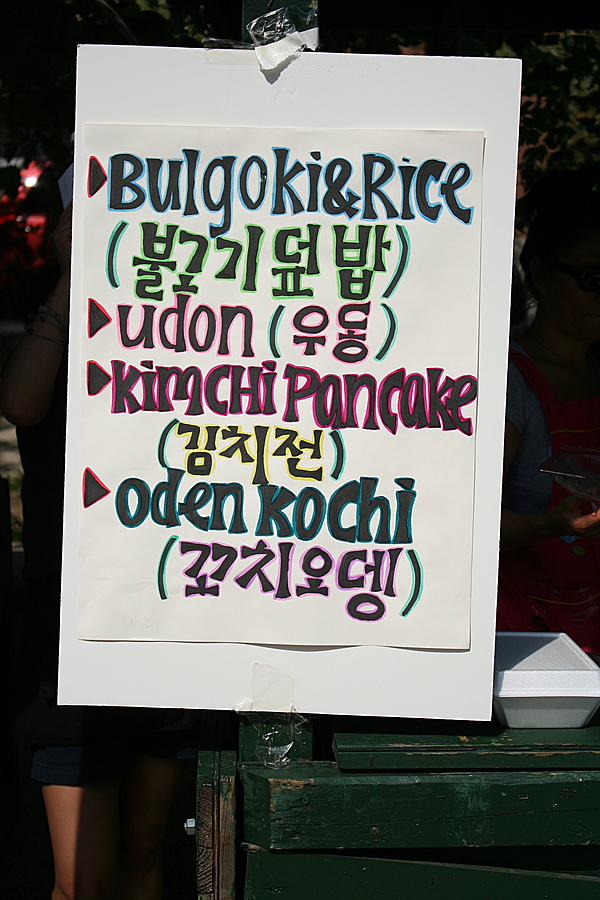 Bulgoki&Rice
(불고기 덮밥)
udon (우동)
Kimchi Pancake
(김치전)
Oden Kochi
(꼬치오뎅)